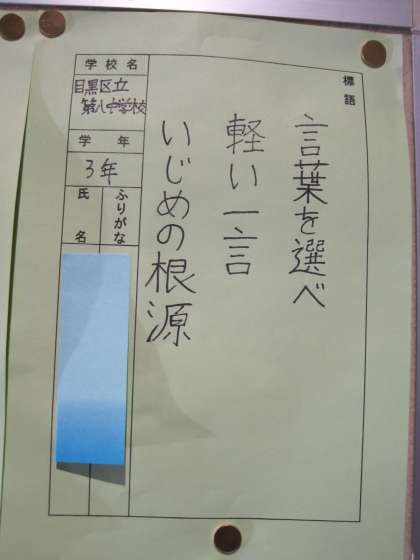 標語
言葉を選べ
軽い一言
いじめの根源
学校名
目黒区立
第八中学校
学年
3年
ふりがな
氏名